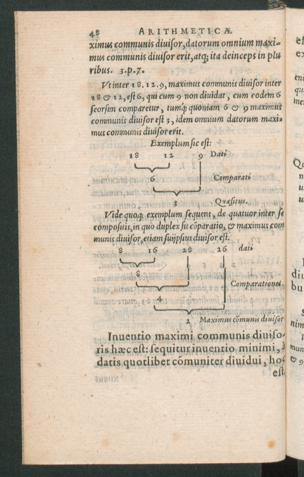 48 ARITHMETICÆ
ximus communis diuisor, datorum omnium maxi-
mus communis diuisor erit, atq; ita deinceps in plu
ribus. 3. p. 7.
Vt inter 18. 12. 9, maximus communis diuisor inter
18 & 12, est 6, qui cum 9 non diuidat, cum eodem 6
seorsim comparetur, tumq; quoniam 6 & 9 maximus
communis diuisor est 3, idem omnium datorum maxi-
mus communis diuisor erit.
Exemplum sic est:
18 12 9 Dati
6 Comparati
3 Quæsitus.
Vide quoq; exemplum sequens, de quatuor inter se
compositis, in quo duplex fit cōparatio, & maximus com
munis diuisor, etiam suipsius diuisor est.
8 16 28 26 dati
8
4 Comparationes
2 Maximus cōmunis diuisor
Inuentio maximi communis diuiso-
ris hæc est: sequitur inuentio minimi, à
datis quotlibet cōmuniter diuidui, ho-
est